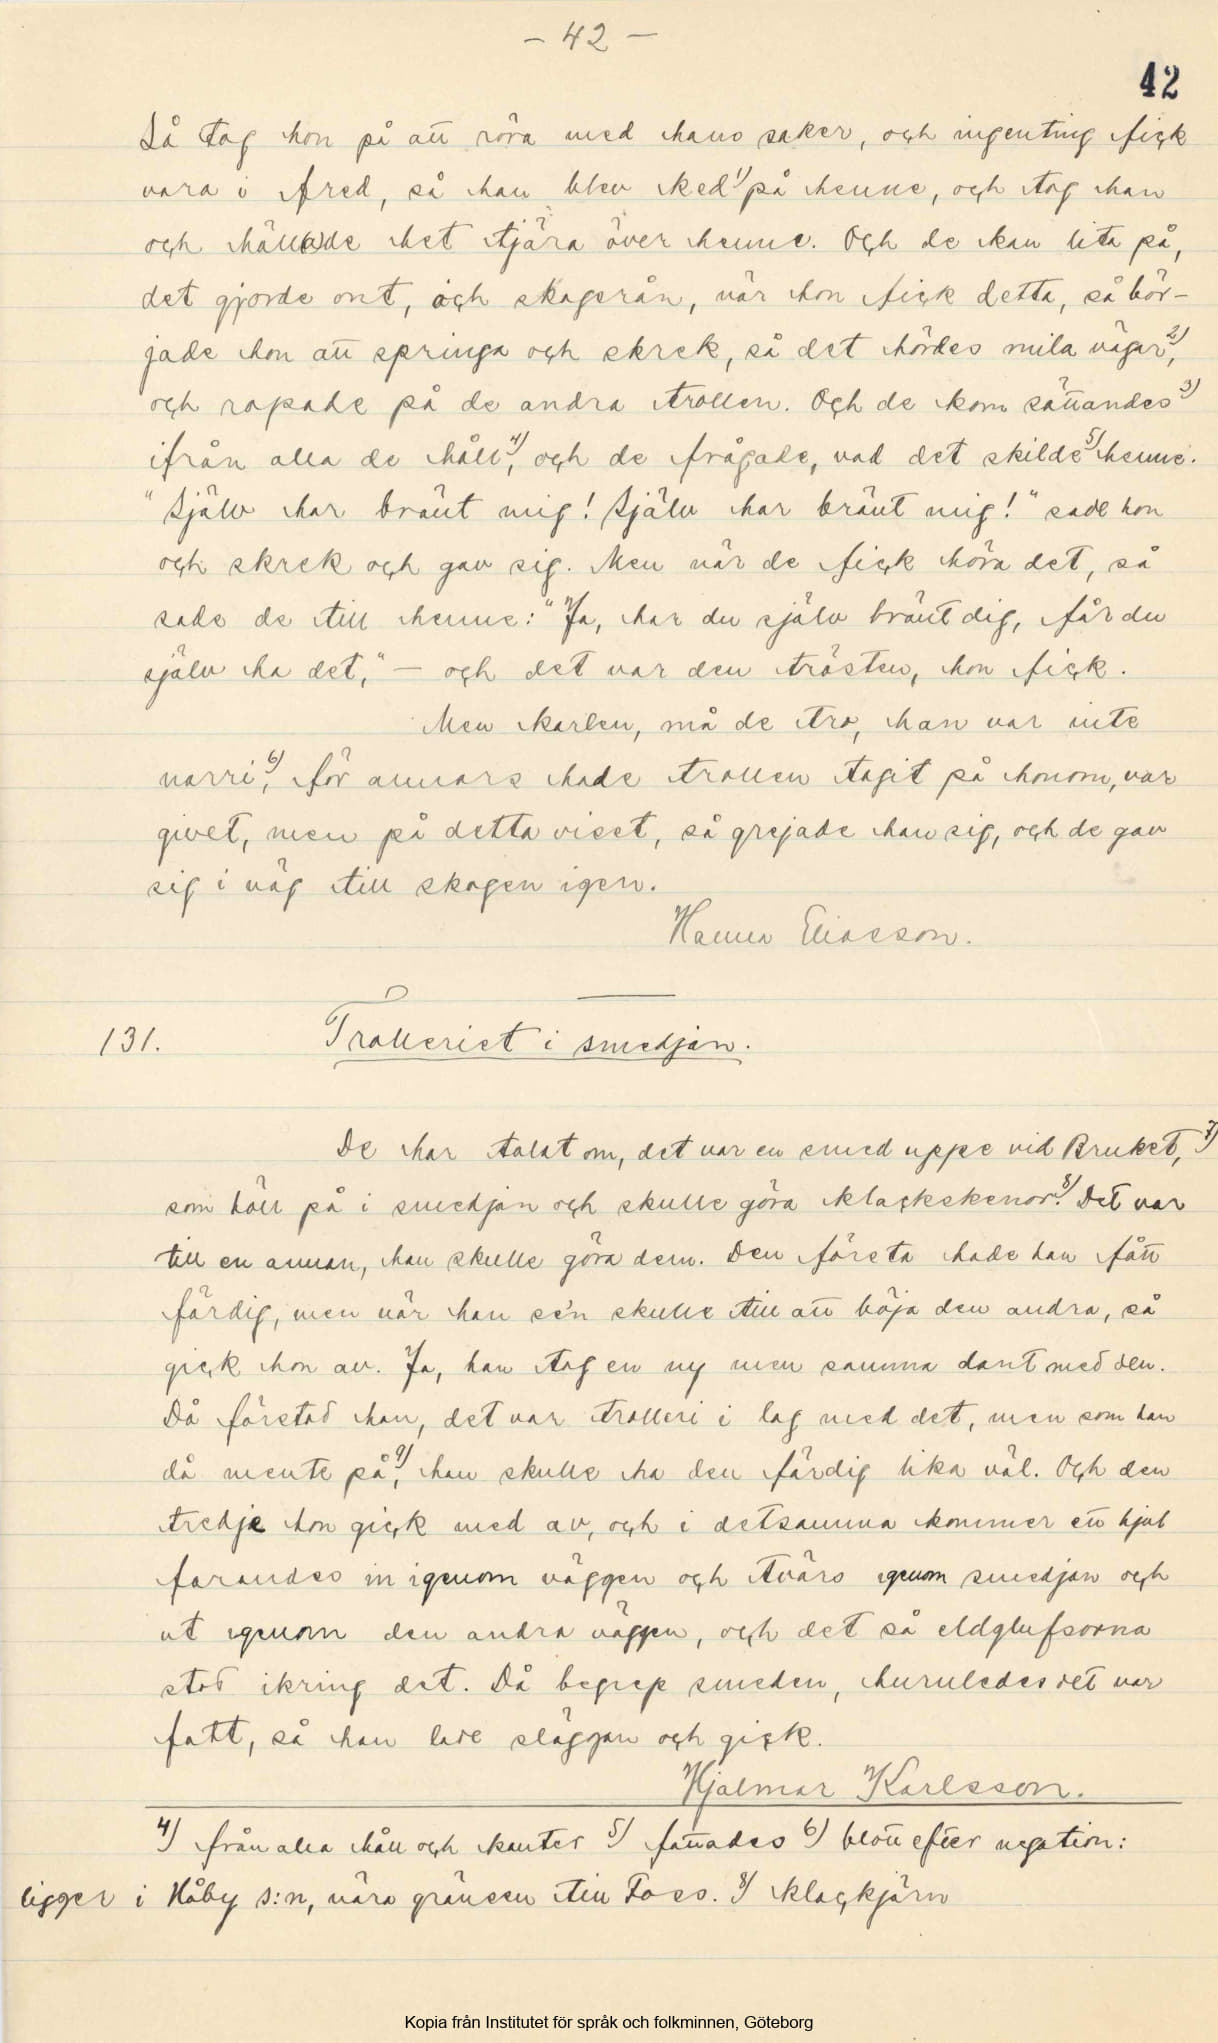 – 42 –
42
Så tog hon på att röra med hans saker, och ingenting fick
vara i fred, så han blev ked¹⁾ på henne, och tog han
och häll(a)de het tjära över henne. Och de kan lita på,
det gjorde ont, och skogsrån, när hon fick detta, så bör-
jade hon att springa och skrek, så det hördes mila vägar²⁾,
och ropade på de andra trollen. Och de kom sättandes³⁾
ifrån alla de håll⁴⁾, och de frågade, vad det skilde⁵⁾ henne.
"Själv har bränt mig! Själv har bränt mig!" sade hon
och skrek och gav sig. Men när de fick höra det, så
sade de till henne: "Ja, har du själv bränt dig, får du
själv ha det," – och det var den trösten, hon fick.
Men karlen, må de tro, han var inte
narri⁶⁾, för annars hade trollen tagit på honom, var
givet, men på detta viset, så grejade han sig, och de gav
sig i väg till skogen igen.
Hanna Eliasson.
131. Trolleriet i smedjan.
De har talat om, det var en smed uppe vid Bruket,⁷⁾
som höll på i smedjan och skulle göra klackskenor⁸⁾. Det var
till en annan, han skulle göra dem. Den första hade han fått
färdig, men när han se'n skulle till att böja den andra, så
gick hon av. Ja, han tog en ny men samma dant med den.
Då förstod han, det var trolleri i lag med det, men som han
då mente på⁹⁾, han skulle ha den färdig lika väl. Och den
tredje hon gick med av, och i detsamma kommer ett hjul
farandes in igenom väggen och tvärs igenom smedjan och
ut igenom den andra väggen, och det så eldglufsorna
stod ikring det. Då begrep smeden, huruledes det var
fatt, så han lade släggan och gick.
Hjalmar Karlsson.
4) från alla håll och kanter 5) fattades 6) blott efter negation:
ligger i Håby s:n, nära gränsen till Foss. 8) klackjärn
Kopia från Institutet för språk och folkminnen, Göteborg